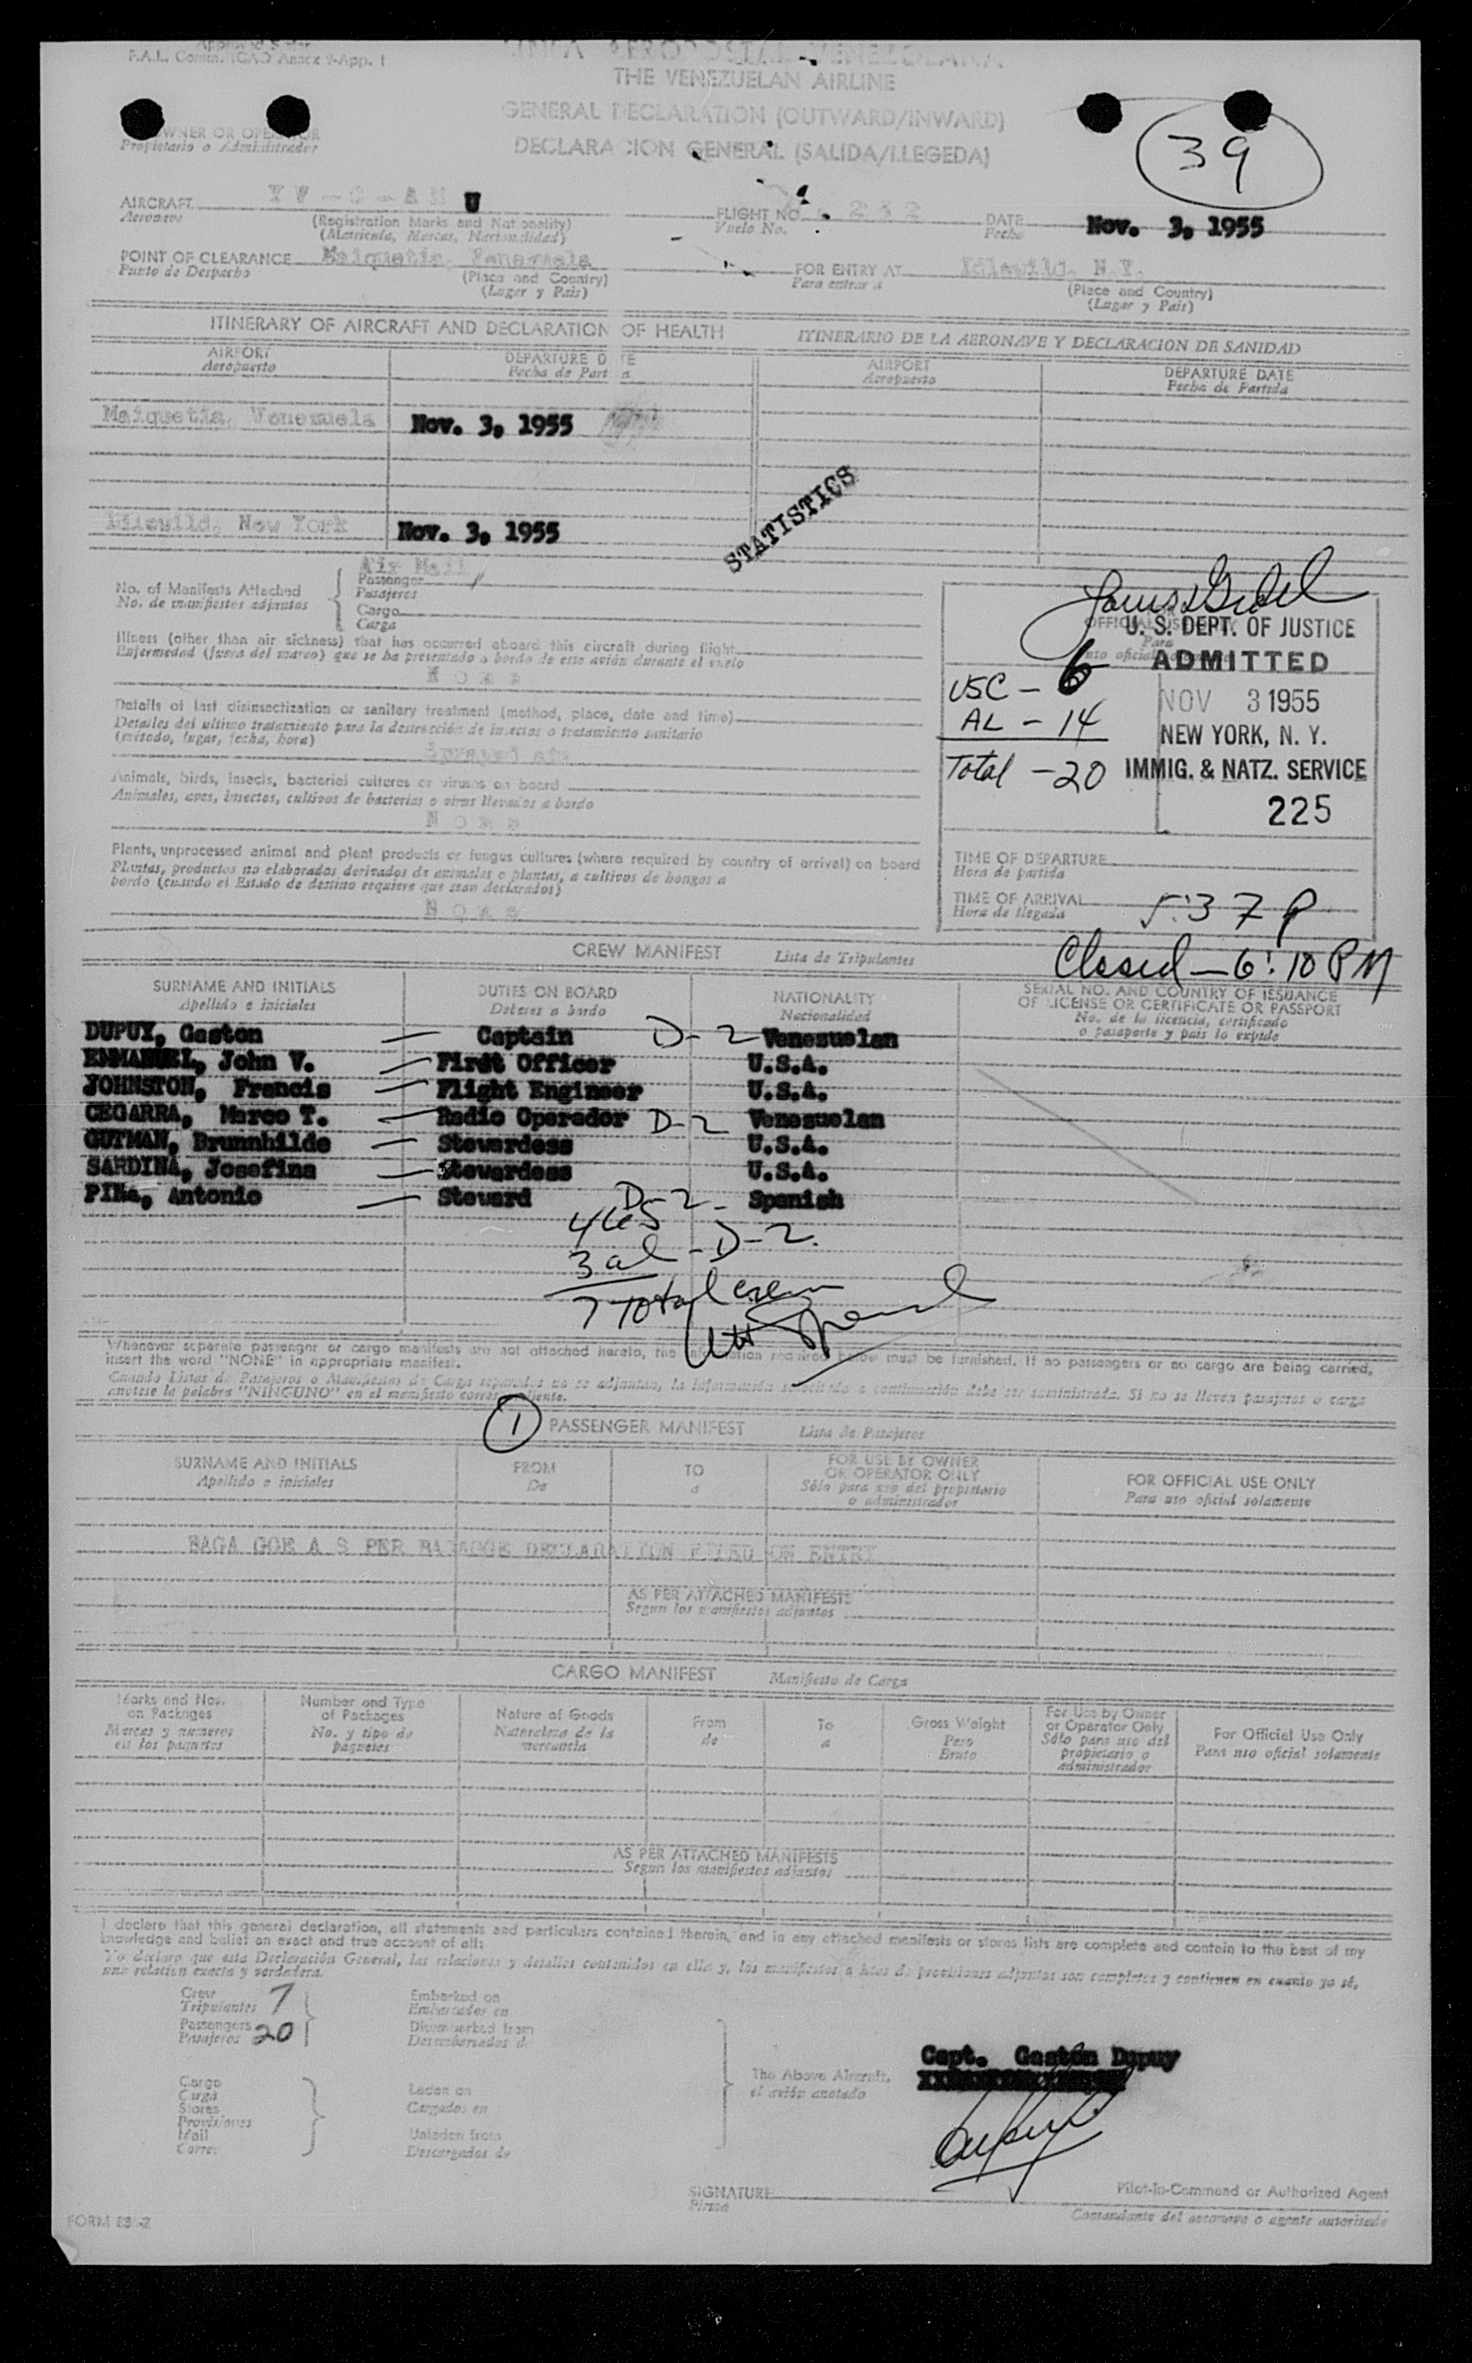 F.A.L. Comm. ICAO Annex 9-App. 1
LINEA AEROPOSTAL VENEZOLANA
THE VENEZUELAN AIRLINE
GENERAL DECLARATION (OUTWARD/INWARD)
DECLARACION GENERAL (SALIDA/LLEGEDA)
39
OWNER OR OPERATOR
Propietario o Administrador
AIRCRAFT YV-C-AM U FLIGHT NO. 232 DATE Nov. 3, 1955
Aeronave (Registration Marks and Nationality) Vuelo No. Fecha
(Matricula, Marcas, Nacionalidad)
POINT OF CLEARANCE Maiquetia, Venezuela FOR ENTRY AT Idlewild, N.Y.
Punto de Despacho (Place and Country) Para entrar a (Place and Country)
(Lugar y Pais) (Lugar y Pais)
ITINERARY OF AIRCRAFT AND DECLARATION OF HEALTH ITINERARIO DE LA AERONAVE Y DECLARACION DE SANIDAD
AIRPORT DEPARTURE DATE AIRPORT DEPARTURE DATE
Aeropuerto Fecha de Partida Aeropuerto Fecha de Partida
Maiquetia, Venezuela Nov. 3, 1955
STATISTICS
Idlewild, New York Nov. 3, 1955
Air Mail
No. of Manifests Attached Passenger 1
No. de manifiestos adjuntos Pasajeros
Cargo
Carga
Illness (other than air sickness) that has occurred aboard this aircraft during flight
Enfermedad (fuera del mareo) que se ha presentado a bordo de este avión durante el vuelo
None
Details of last disinsectization or sanitary treatment (method, place, date and time)
Detalles del ultimo tratamiento para la destrucción de insectos o tratamiento sanitario
(método, lugar, fecha, hora)
Sprayed
Animals, birds, insects, bacterial cultures or viruses on board
Animales, aves, insectos, cultivos de bacterias o virus llevados a bordo
None
Plants, unprocessed animal and plant products or fungus cultures (where required by country of arrival) on board
Plantas, productos no elaborados derivados de animales o plantas, a cultivos de hongos a
bordo (cuando el Estado de destino requiere que sean declarados)
None
U. S. DEPT. OF JUSTICE
ADMITTED
NOV 3 1955
NEW YORK, N. Y.
IMMIG. & NATZ. SERVICE
225
USC - 6
AL - 14
Total - 20
TIME OF DEPARTURE
Hora de partida
TIME OF ARRIVAL 5:37 P
Hora de llegada
Closed - 6:10 PM
CREW MANIFEST Lista de Tripulantes
SURNAME AND INITIALS DUTIES ON BOARD NATIONALITY SERIAL NO. AND COUNTRY OF ISSUANCE
Apellido e iniciales Deberes a bordo Nacionalidad OF LICENSE OR CERTIFICATE OR PASSPORT
No. de la licencia, certificado
o pasaporte y pais lo expide
DUPUY, Gaston — Captain D-2 Venezuelan
EMMANUEL, John V. — Firdt Officer U.S.A.
JOHNSTON, Francis — Flight Engineer U.S.A.
CEGARRA, Marco T. — Radio Operador D-2 Venezuelan
GUTMAN, Brunnhilde — Stewardess U.S.A.
SARDINA, Josefina — Stewardess U.S.A.
PIÑa, Antonio — Steward D-2 - Spanish
4 US
3 al - D-2.
7 Total crew
Whenever separate passenger or cargo manifests are not attached hereto, the information required below must be furnished. If no passengers or no cargo are being carried,
insert the word "NONE" in appropriate manifest.
Cuando Listas de Pasajeros o Manifiestos de Carga separados no se adjuntan, la información solicitada a continuación debe ser suministrada. Si no se lleven pasajeros o carga
anotese la palabra "NINGUNO" en el manifiesto correspondiente.
1 PASSENGER MANIFEST Lista de Pasajeros
SURNAME AND INITIALS FROM TO FOR USE BY OWNER OR OPERATOR ONLY FOR OFFICIAL USE ONLY
Apellido e iniciales De a Sólo para uso del propietario o administrador Para uso oficial solamente
BAGA GGE A S PER BAGAGGE DECLARATION FILED ON ENTRY
AS PER ATTACHED MANIFESTS
Segun los manifiestos adjuntos
CARGO MANIFEST Manifiesto de Carga
Marks and Nos. on Packages Number and Type of Packages Nature of Goods From To Gross Weight For Use by Owner or Operator Only For Official Use Only
Marcas y numeros en los paquetes No. y tipo de paquetes Naturaleza de la mercancia de a Peso Bruto Sólo para uso del propietario o administrador Para uso oficial solamente
AS PER ATTACHED MANIFESTS
Segun los manifiestos adjuntos
I declare that this general declaration, all statements and particulars contained therein, and in any attached manifests or stores lists are complete and contain to the best of my
knowledge and belief an exact and true account of all:
Yo declaro que esta Declaración General, las relaciones y detalles contenidos en ella y, los manifiestos a listas de provisiones adjuntas son completos y contienen en cuanto yo sé,
una relacion exacta y verdadera.
Crew 7 Embarked on
Tripulantes Embarcados en
Passengers 20 Disembarked from
Pasajeros Desembarcados de
Cargo
Carga Laden on
Stores Cargados en
Provisiones
Mail Unladen from
Correo Descargados de
The Above Aircraft,
el avión anotado
Capt. Gastón Dupuy
SIGNATURE Pilot-in-Command or Authorized Agent
Firma Comandante del aeronave o agente autorizado
FORM 88-2